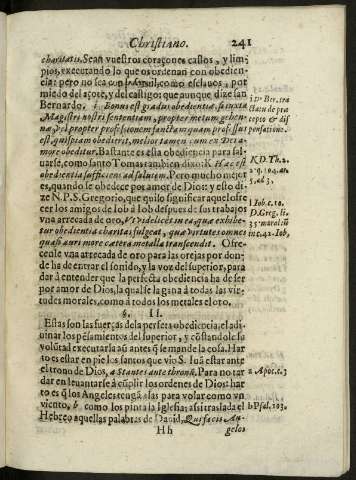 Christiano. 241
charitatis. Sean vuestros coraçones castos, y lim-
pios, executando lo que os ordenan con obedien-
cia: pero no sea con como esclauos, por
miedo del açote, y del castigo: que aunque dize san
Bernardo. i Bonus est gradus obedientiæ, si iuxta
Magistri nostri sententiam, propter metum gehen-
næ, vel propter professionem sanctam quam professus
est, quispiam obedierit, melior tamen cum ex Dei a-
more obeditur. Bastante es esta obediencia para sal-
uarse, como santo Tomas tambien dixo: K Hæc est
obedientia sufficiens ad salutem. Pero mucho mejor
es, quando se obedece por amor de Dios: y esto di-
ze N.P.S. Gregorio, que quiso significar aquel ofre
cer los amigos de Iob a Iob despues de sus trabajos
vna arrecada de oro, Videlicet in ea, quæ exhibe-
tur obedientia charitas fulgeat, qua virtutes omnes
quasi auri more cætera metalla transcendit. Ofre-
cenle vna arrecada de oro para las orejas por don-
de ha de entrar el sonido, y la voz del superior, para
dar à entender que la perfecta obediencia ha de ser
por amor de Dios, la qual se la gana à todas las vir-
tudes morales, como à todos los metales el oro.
§. II.
Estas son las fuerças dela perfeta obediencia, el adi-
uinar los pẽsamientos del superior, y cõstandole su
volũtad executarla aũ antes q̃ se mande la cosa. Har
to es estar en pie los santos que viò S. Iuã estar ante
el trono de Dios, a Stantes ante thronũ. Para no tar
dar en leuantarse à cũplir los ordenes de Dios: har
to es q̃ los Angeles tengã alas para volar como vn
viento, b como los pinta la Iglesia: assi traslada el
Hebreo aquellas palabras de Dauid, Qui facis An-
Hh gelos
i D. Ber. tra
ctatu de præ
cepto & dis
pensatione.
K D. Th. 2.
2. q. 104. ar.
5. ad 3.
Iob. c. 10.
D. Greg. li.
35. moral. in
c. 42. Iob.
a Apoc. c. 3
b Psal. 103.